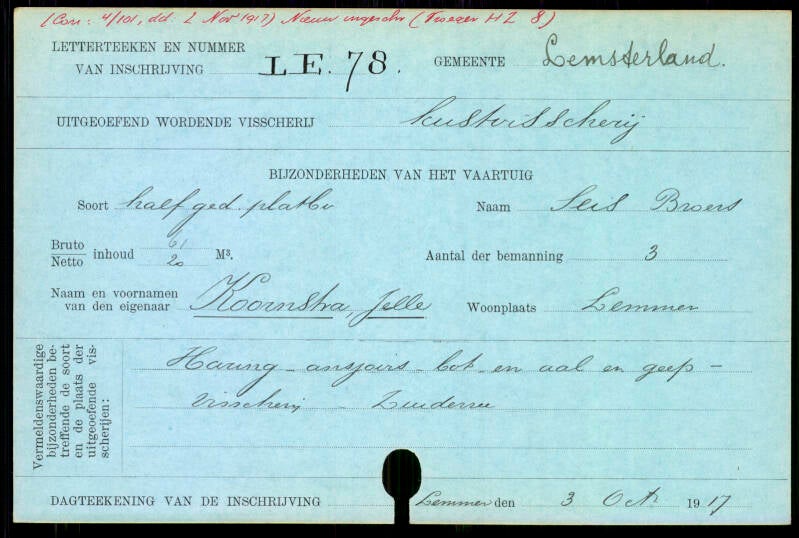 (Corr: 4/101, dd. 2 Nov 1917) Nieuw ingeschr (Vroeger HZ 8)
LETTERTEEKEN EN NUMMER
VAN INSCHRIJVING L.E. 78. GEMEENTE Lemsterland.
UITGEOEFEND WORDENDE VISSCHERIJ kustvisscherij
BIJZONDERHEDEN VAN HET VAARTUIG
Soort half ged. platb. Naam Seis Broers
Bruto 61
Netto inhoud 20 M³. Aantal der bemanning 3
Naam en voornamen
van den eigenaar Koornstra, Jelle Woonplaats Lemmer
Vermeldenswaardige
bijzonderheden be-
treffende de soort
en de plaats der
uitgeoefende vis-
scherijen:
Haring - ansjovis - bot en aal en geep -
visscherij - Zuiderzee
DAGTEEKENING VAN DE INSCHRIJVING Lemmer den 3 Oct. 1917